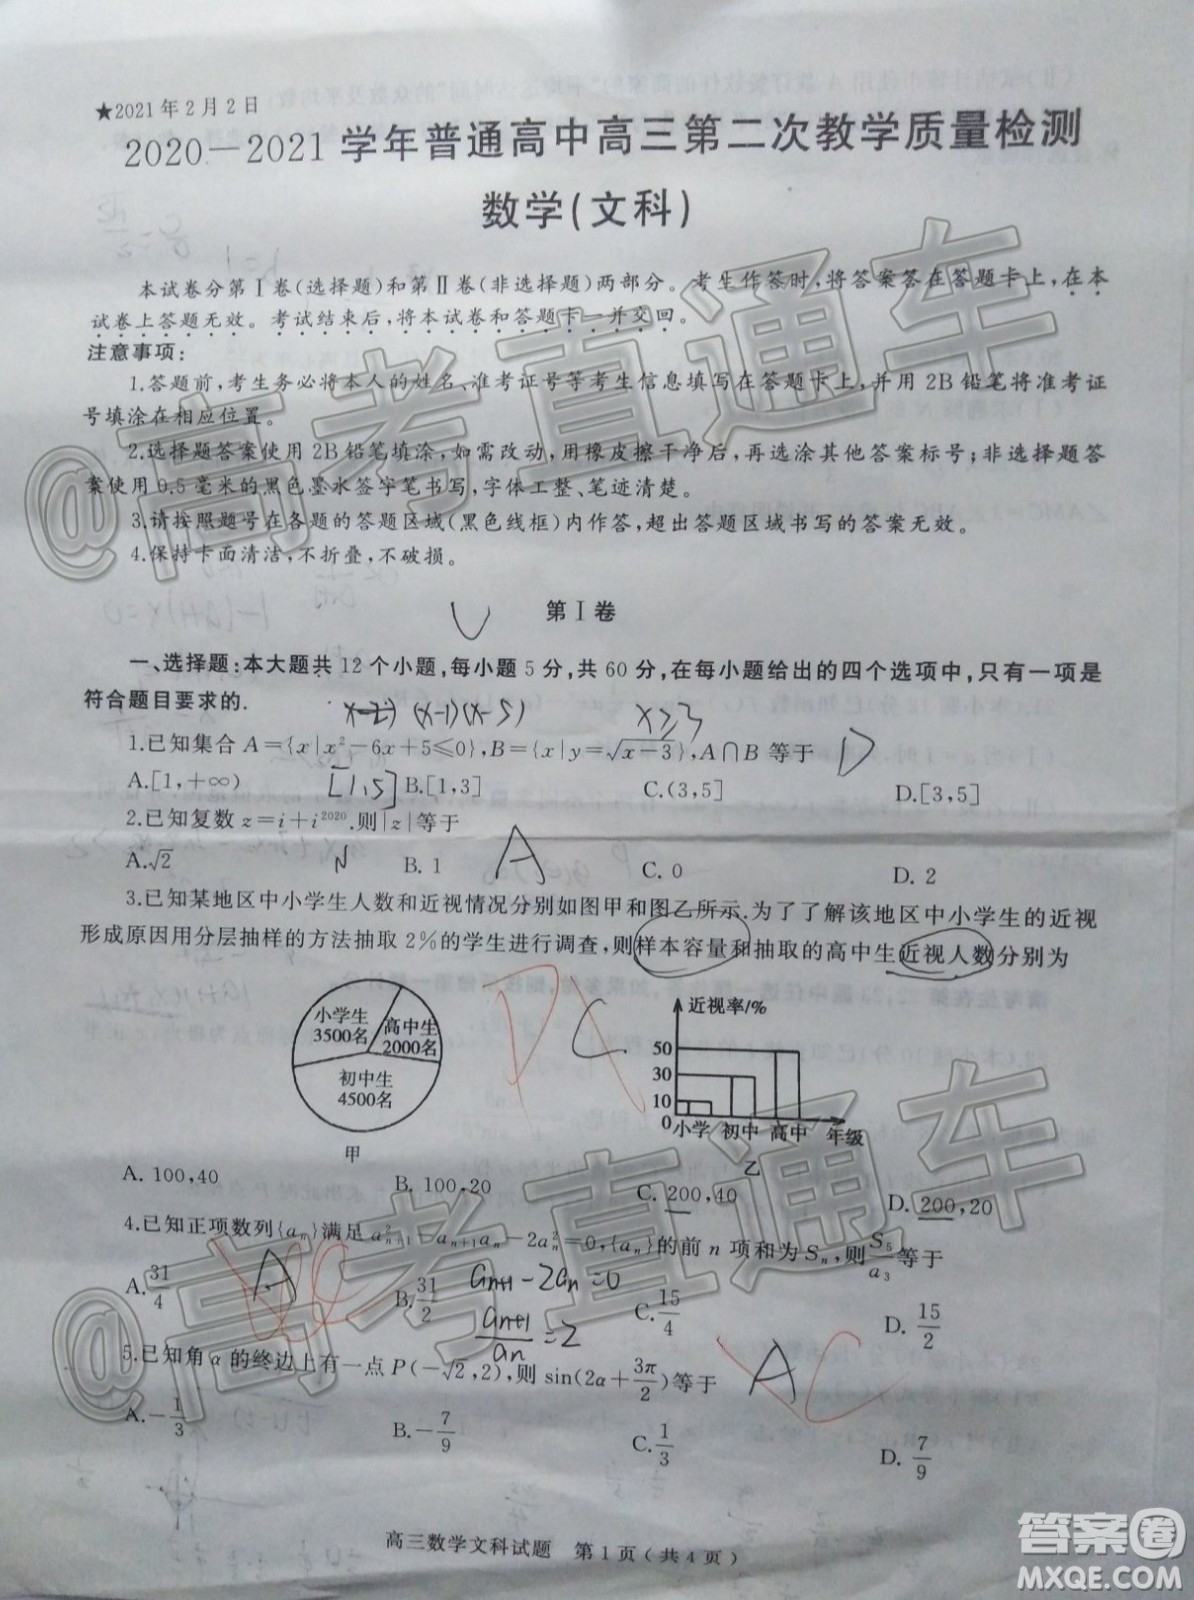 ★2021年2月2日
2020—2021学年普通高中高三第二次教学质量检测
数学(文科)
本试卷分第Ⅰ卷(选择题)和第Ⅱ卷(非选择题)两部分。考生作答时,将答案答在答题卡上,在本
试卷上答题无效。考试结束后,将本试卷和答题卡一并交回。
注意事项:
1.答题前,考生务必将本人的姓名、准考证号等考生信息填写在答题卡上,并用2B铅笔将准考证
号填涂在相应位置。
2.选择题答案使用2B铅笔填涂,如需改动,用橡皮擦干净后,再选涂其他答案标号;非选择题答
案使用0.5毫米的黑色墨水签字笔书写,字体工整、笔迹清楚。
3.请按照题号在各题的答题区域(黑色线框)内作答,超出答题区域书写的答案无效。
4.保持卡面清洁,不折叠,不破损。
第Ⅰ卷
一、选择题:本大题共12个小题,每小题5分,共60分,在每小题给出的四个选项中,只有一项是
符合题目要求的.
(x-1)(x-5) x≥3
1.已知集合A={x|x²-6x+5≤0},B={x|y=√(x-3)},A∩B等于 D
A.[1,+∞) [1,5] B.[1,3] C.(3,5] D.[3,5]
2.已知复数z=i+i²⁰²⁰.则|z|等于
A.√2 B. 1 A C. 0 D. 2
3.已知某地区中小学生人数和近视情况分别如图甲和图乙所示.为了了解该地区中小学生的近视
形成原因用分层抽样的方法抽取2%的学生进行调查,则样本容量和抽取的高中生近视人数分别为
小学生
3500名
高中生
2000名
初中生
4500名
甲
C
近视率/%
50
30
10
0
小学 初中 高中 年级
乙
A. 100,40 B. 100,20 C. 200,40 D. 200,20
4.已知正项数列{aₙ}满足a²ₙ₊₁-aₙ₊₁aₙ-2a²ₙ=0,{aₙ}的前n项和为Sₙ,则S₅/a₃等于
A.31/4 B.31/2 C.15/4 D. 15/2
A
aₙ₊₁-2aₙ=0
aₙ₊₁/aₙ=2
5.已知角α的终边上有一点P(-√2,2),则sin(2α+3π/2)等于 A C
A.-1/3 B.-7/9 C.1/3 D. 7/9
高三数学文科试题 第1页(共4页)
@高考直通车
@高考直通车
答案圈
MXQE.COM